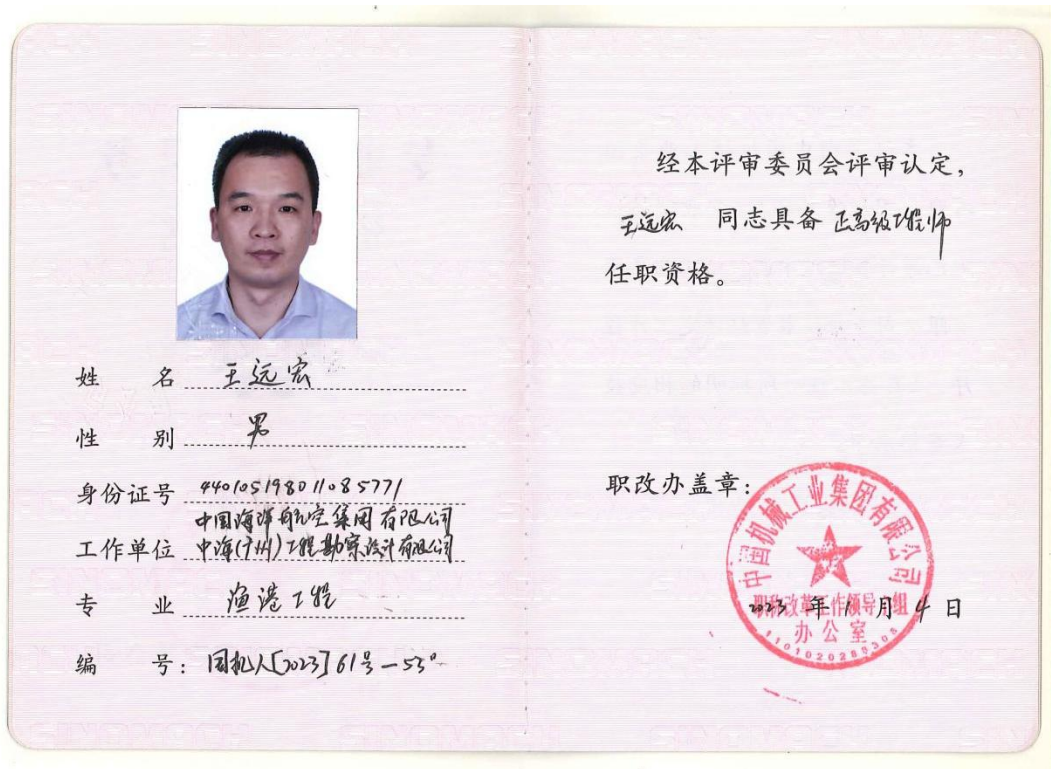 姓 名 王远宏
性 别 男
身份证号 440105198011085771
中国海洋航空集团有限公司
工作单位 中海(广州)工程勘察设计有限公司
专 业 渔港工程
编 号: 国机人[2023]61号-53#
经本评审委员会评审认定,
王远宏 同志具备 正高级工程师
任职资格。
职改办盖章:
中国机械工业集团有限公司
职称改革工作领导小组
办公室
2023 年 1 月 4 日